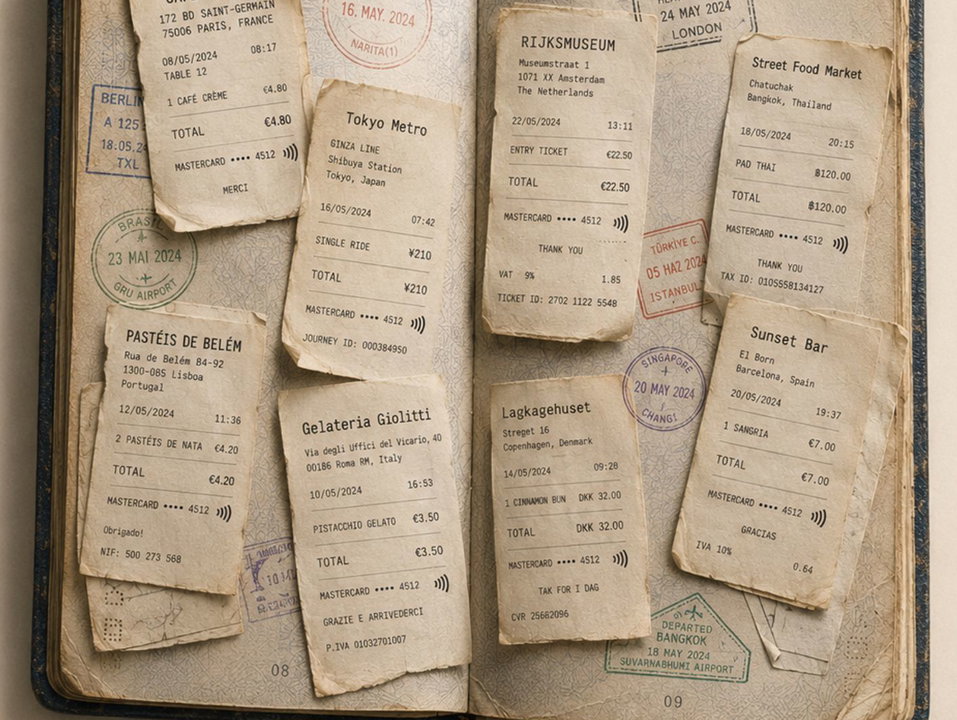 172 BD SAINT-GERMAIN
75006 PARIS, FRANCE
08/05/2024 08:17
TABLE 12
1 CAFÉ CRÈME €4.80
TOTAL €4.80
MASTERCARD •••• 4512
MERCI
16. MAY. 2024
NARITA(1)
BERLIN
A 125
18.05.24
TXL
Tokyo Metro
GINZA LINE
Shibuya Station
Tokyo, Japan
16/05/2024 07:42
SINGLE RIDE ¥210
TOTAL ¥210
MASTERCARD •••• 4512
JOURNEY ID: 000384950
BRASIL
23 MAI 2024
GRU AIRPORT
PASTÉIS DE BELÉM
Rua de Belém 84-92
1300-085 Lisboa
Portugal
12/05/2024 11:36
2 PASTÉIS DE NATA €4.20
TOTAL €4.20
MASTERCARD •••• 4512
Obrigado!
NIF: 500 273 568
Gelateria Giolitti
Via degli Uffici del Vicario, 40
00186 Roma RM, Italy
10/05/2024 16:53
PISTACCHIO GELATO €3.50
TOTAL €3.50
MASTERCARD •••• 4512
GRAZIE E ARRIVEDERCI
P.IVA 01032701007
08
RIJKSMUSEUM
Museumstraat 1
1071 XX Amsterdam
The Netherlands
22/05/2024 13:11
ENTRY TICKET €22.50
TOTAL €22.50
MASTERCARD •••• 4512
THANK YOU
VAT 9% 1.85
TICKET ID: 2702 1122 5548
24 MAY 2024
LONDON
Street Food Market
Chatuchak
Bangkok, Thailand
18/05/2024 20:15
PAD THAI ฿120.00
TOTAL ฿120.00
MASTERCARD •••• 4512
THANK YOU
TAX ID: 0105558134127
TÜRKİYE C.
05 HAZ 2024
ISTANBUL
SINGAPORE
20 MAY 2024
CHANGI
Lagkagehuset
Strøget 16
Copenhagen, Denmark
14/05/2024 09:28
1 CINNAMON BUN DKK 32.00
TOTAL DKK 32.00
MASTERCARD •••• 4512
TAK FOR I DAG
CVR 25662096
Sunset Bar
El Born
Barcelona, Spain
20/05/2024 19:37
1 SANGRIA €7.00
TOTAL €7.00
MASTERCARD •••• 4512
GRACIAS
IVA 10%
0.64
DEPARTED
BANGKOK
18 MAY 2024
SUVARNABHUMI AIRPORT
09